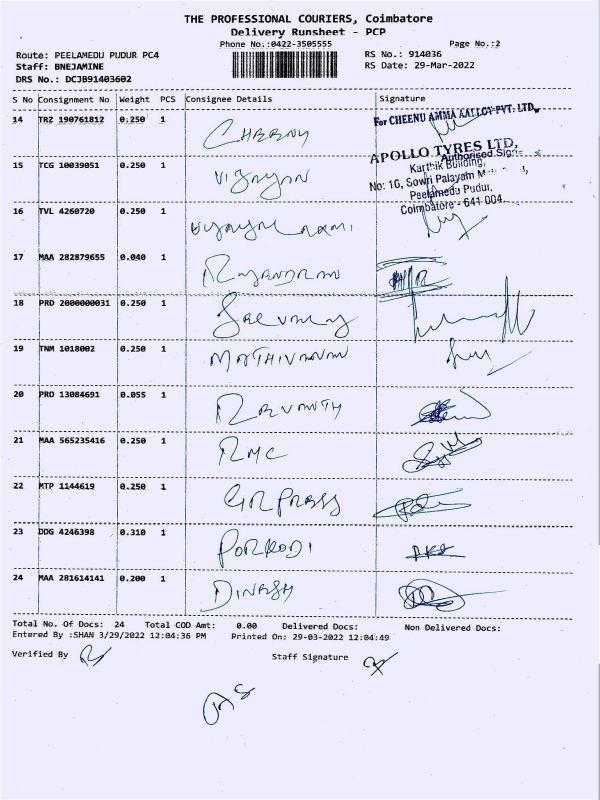 THE PROFESSIONAL COURIERS, Coimbatore
Delivery Runsheet - PCP
Phone No.:0422-3505555
Page No.:2
Route: PEELAMEDU PUDUR PC4
RS No.: 914036
Staff: BNEJAMINE
RS Date: 29-Mar-2022
DRS No.: DCJB91403602
S No Consignment No Weight PCS Consignee Details Signature
14 TRZ 190761812 0.250 1 CHEENU
For CHEENU AMMA PVT. LTD.,
Authorised Sign
15 TCG 10039051 0.250 1
APOLLO TYRES LTD,
Karthik Building,
No: 1G, Sowri Palayam
Peelamedu Pudur,
Coimbatore - 641 004
16 TVL 4260720 0.250 1
17 MAA 282879655 0.040 1 RAJENDRAN
18 PRD 2000000031 0.250 1
19 TNM 1018002 0.250 1 MATHIVANAN
20 PRO 13084691 0.055 1 REVANTH
21 MAA 565235416 0.250 1 RMC
22 MTP 1144619 0.250 1 GR PRESS
23 DDG 4246398 0.310 1 PORKODI
24 MAA 281614141 0.200 1 DINESH
Total No. Of Docs: 24 Total COD Amt: 0.00 Delivered Docs: Non Delivered Docs:
Entered By :SHAN 3/29/2022 12:04:36 PM Printed On: 29-03-2022 12:04:49
Verified By Staff Signature